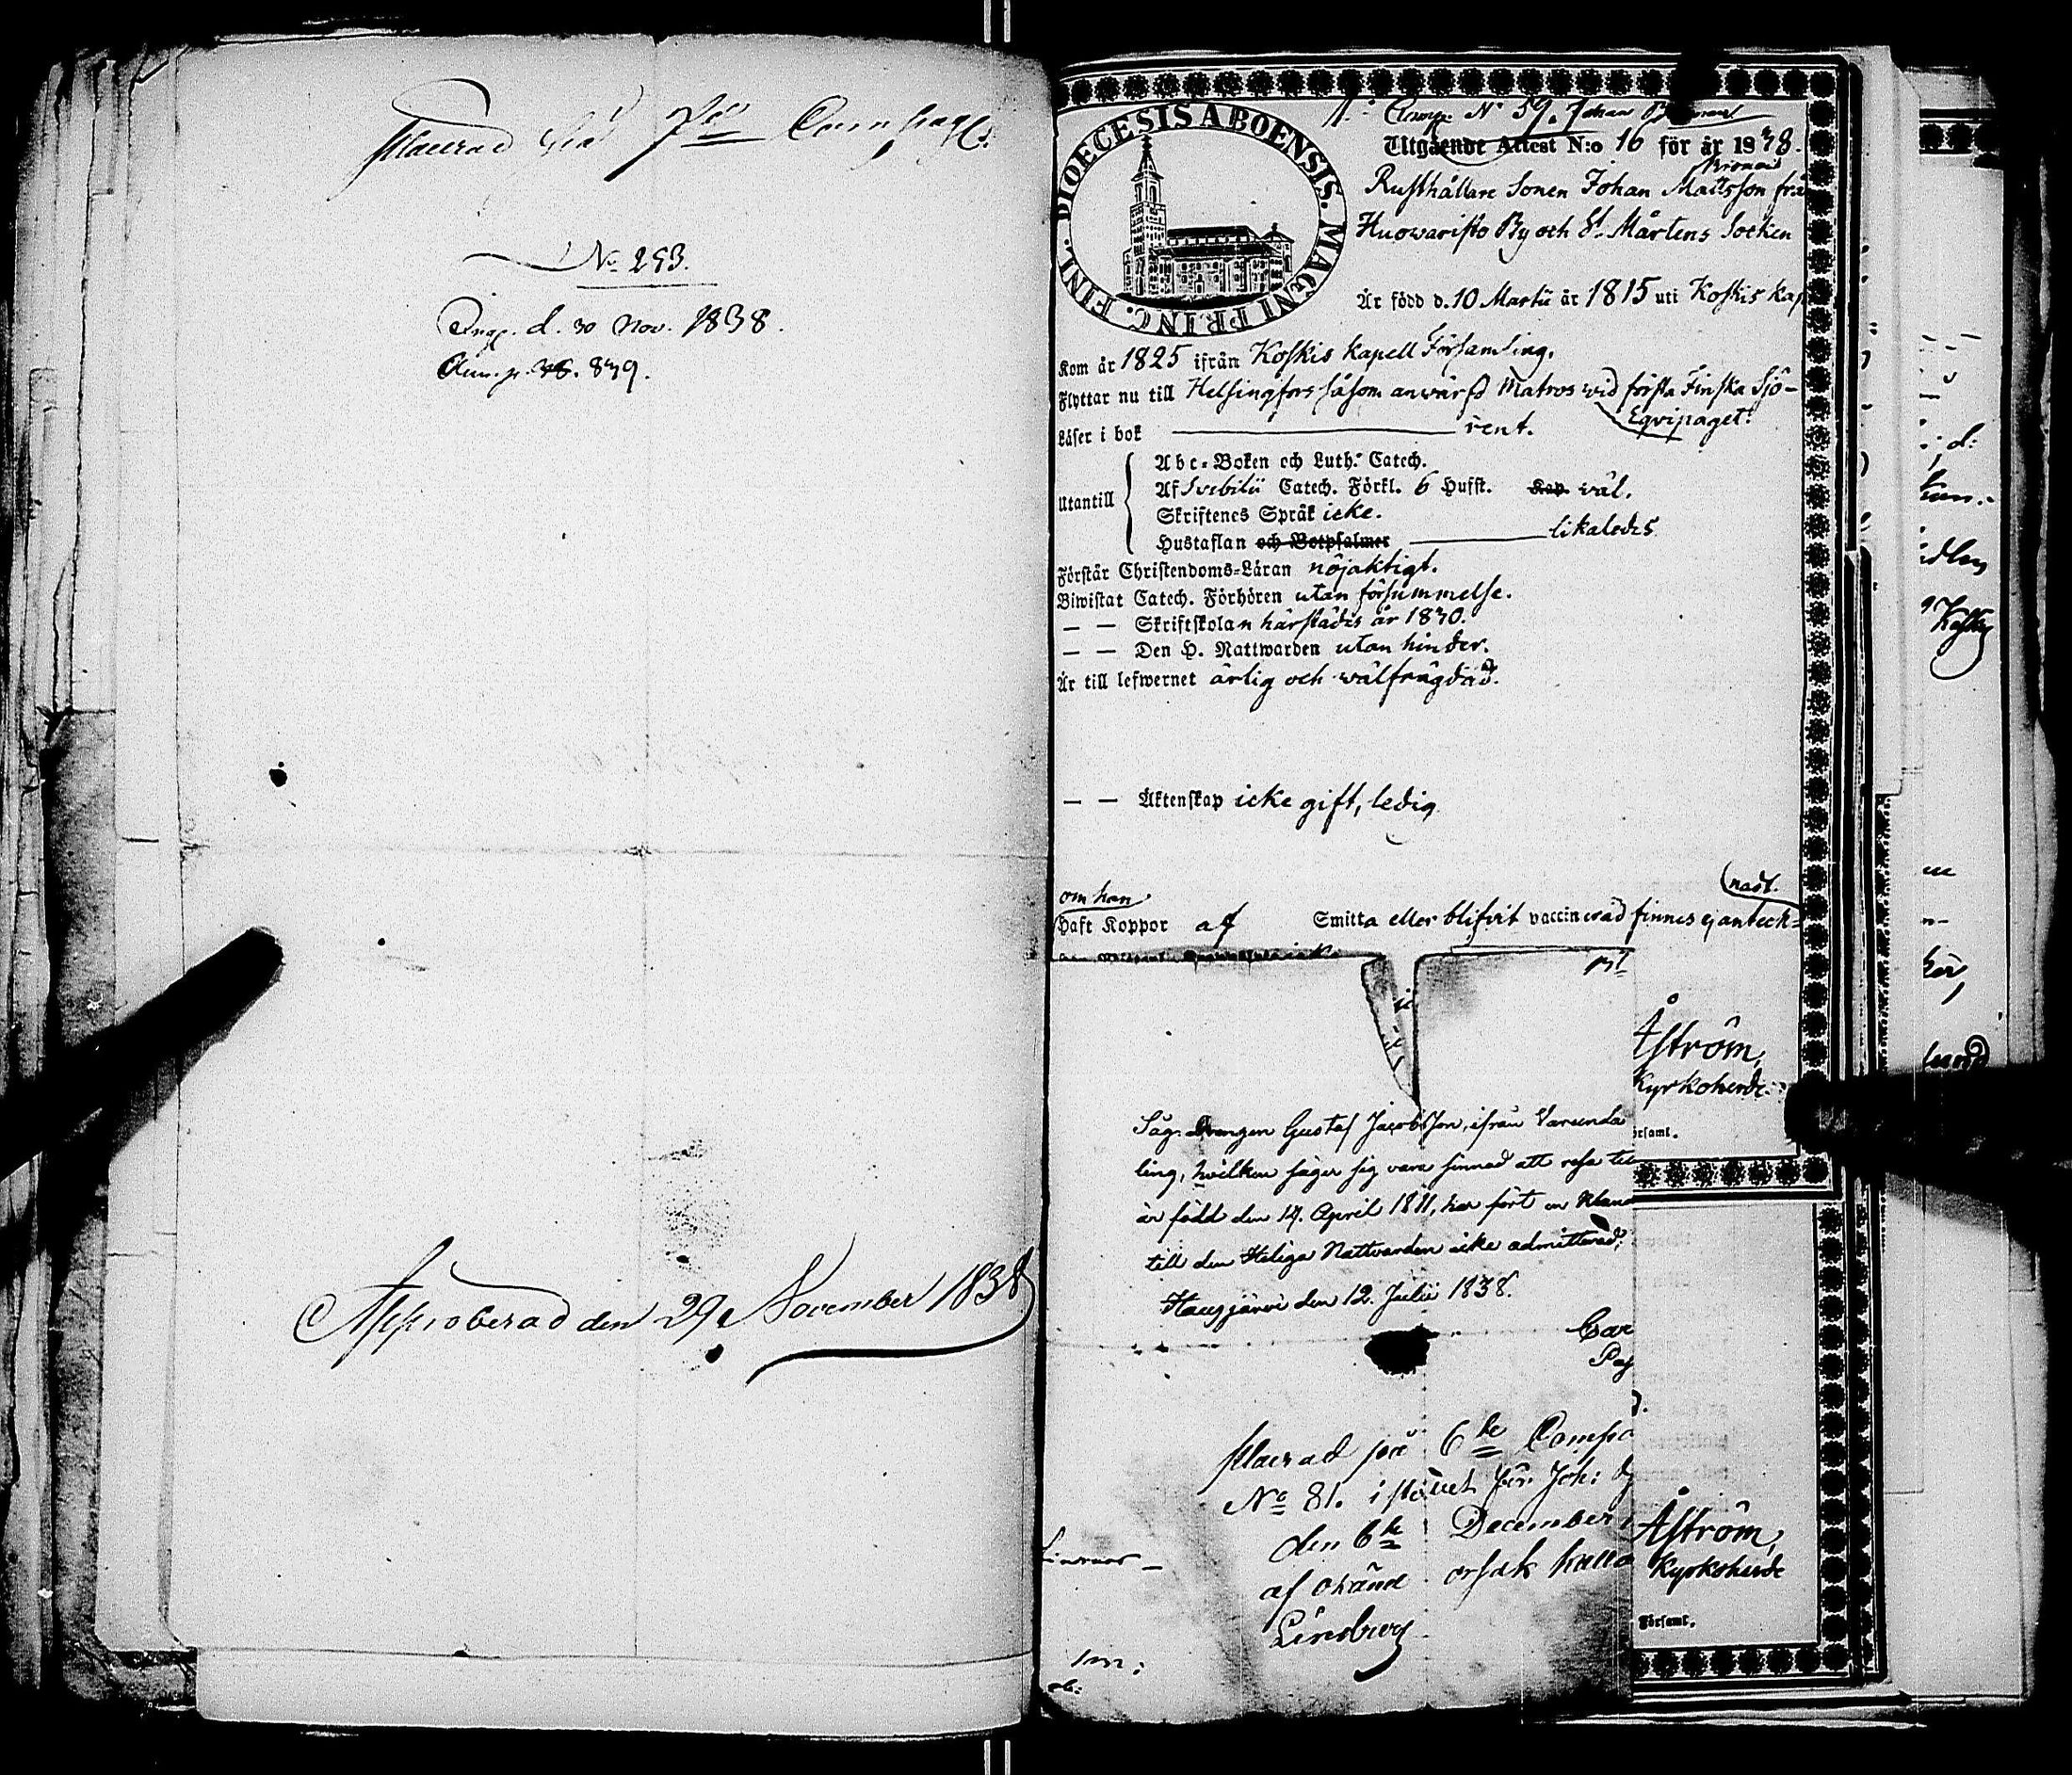 placerad på 7de Compagt
No 293.
Ingr. d. 30 Nov. 1838.
839.
Approberad den 29 November 1838
DIOECESIS ABOENSIS. MAGNI PRINC. FINL.
Comp. No 59. Johan
Utgående Attest N:o 16 för år 1838.
Rusthållare Sonen Johan Mattsson från
Huowaristo By och St. Mårtens Socken
Är född d. 10 Martii år 1815 uti Koskis kap
Kom år 1825 ifrån Koskis kapell Församling.
Flyttar nu till Helsingfors såsom anwärfd Matros wid första Finska Sjö-
Eqvipaget.
Läser i bok rent.
Utantill
Abc-Boken och Luth: Catech.
Af Svebilii Catech. Förkl. 6 Hufst. wäl.
Skriftenes Språk icke.
Hustaflan och Botpsalmer likaledes
Förstår Christendoms-Läran nöjaktigt.
Biwistat Catech. Förhören utan försummelse.
— — Skriftskolan härstädes år 1830.
— — Den H. Nattwarden utan hinder.
Är till lefwernet ärlig och wälfrägdad.
— — Äktenskap icke gift, ledig
om han
nadt.
Haft Koppor af Smitta eller blifvit vaccinerad finnes ej anteck-
Åström,
Kyrkoherde.
örsaml.
Säg. Drengen Gustaf Jacobsson, ifrån Varunda
ling, hvilken säger sig vara sinnad att resa till
är född den 14. April 1811, har fört en
till den Heliga Nattvarden icke admitterad;
Haugjärvi den 12. Julii 1838.
Car
Pas
placerad på 6te Compa
No 81. i stället för Joh:
den 6te December
af okänd orsak kalla
Lindberg
Åström,
Kyrkoherde
Församl.